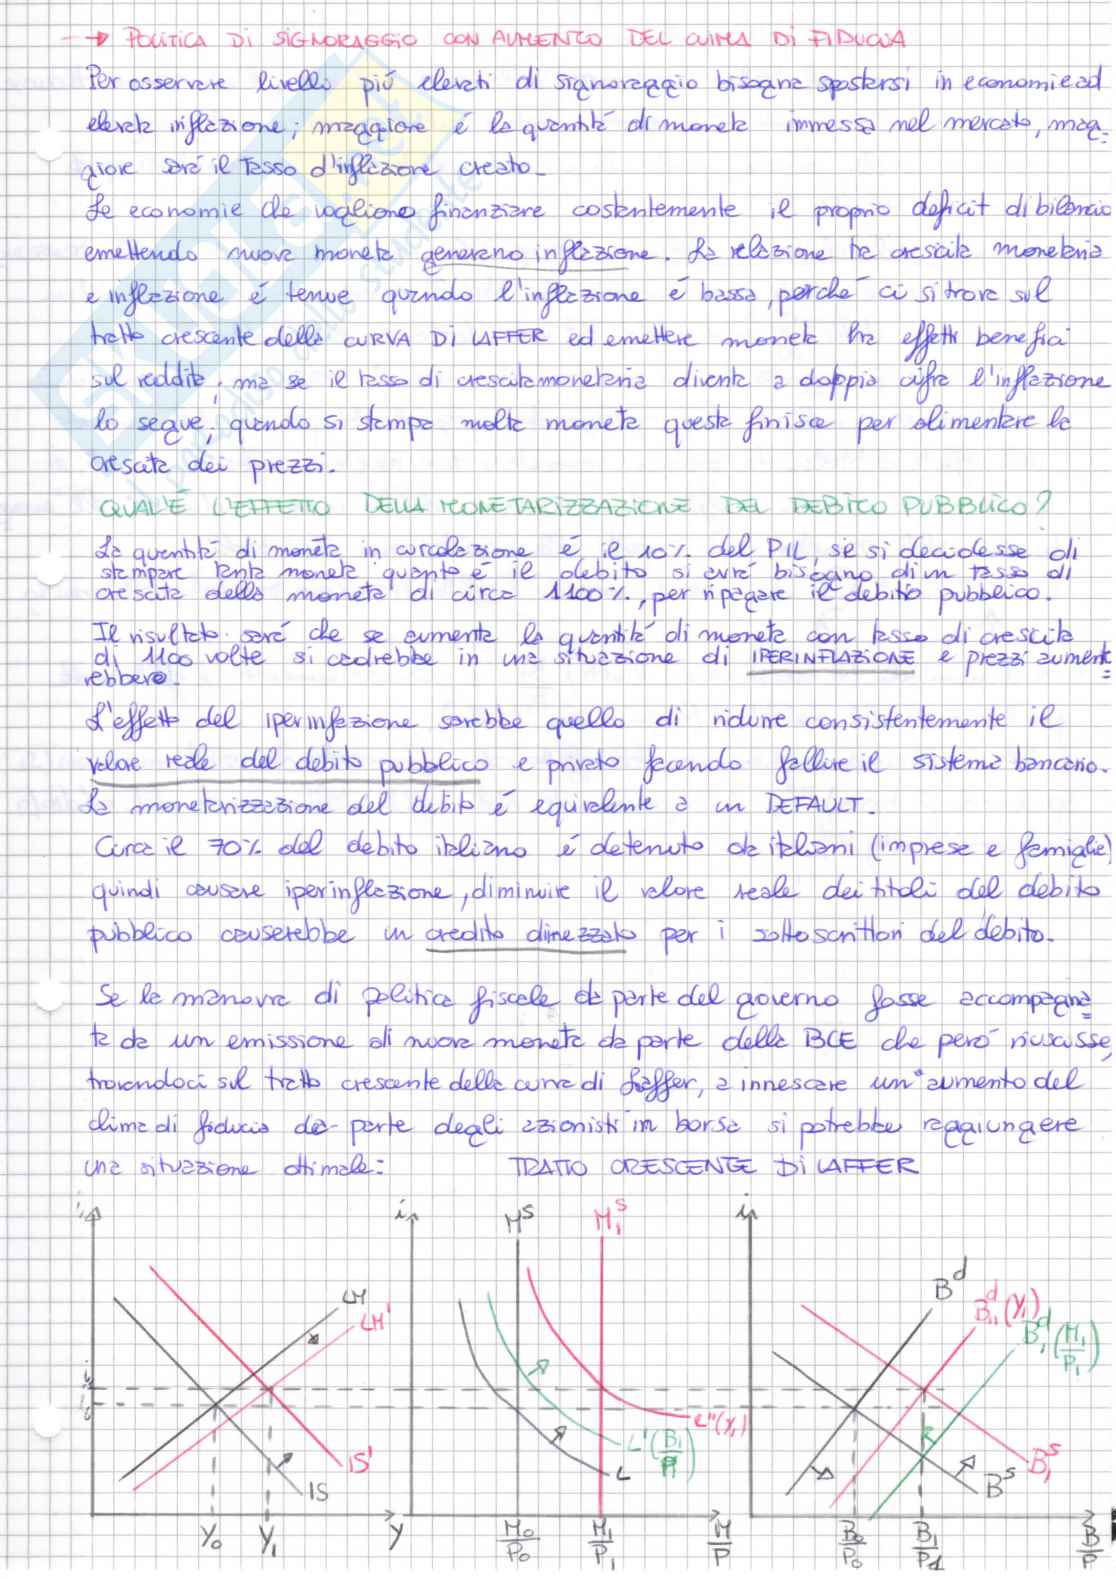 → POLITICA DI SIGNORAGGIO CON AUMENTO DEL CLIMA DI FIDUCIA
Per osservare livelli più elevati di signoraggio bisogna spostarsi in economie ad
elevata inflazione; maggiore é la quantitá di moneta immessa nel mercato, mag=
giore sará il tasso d'inflazione creato.
Le economie che vogliono finanziare costantemente il proprio deficit di bilancio
emettendo nuova moneta generano inflazione. La relazione tra crescita monetaria
e inflazione é tenue quando l'inflazione é bassa, perché ci si trova sul
tratto crescente della CURVA DI LAFFER ed emettere moneta ha effetti benefici
sul reddito, ma se il tasso di crescita monetaria diventa a doppia cifra l'inflazione
lo segue; quando si stampa molta moneta questa finisce per alimentare la
crescita dei prezzi.
QUAL'É L'EFFETTO DELLA MONETARIZZAZIONE DEL DEBITO PUBBLICO?
La quantitá di moneta in circolazione é il 10% del PIL, se si decidesse di
stampare tanta moneta quanto é il debito si avrá bisogno di un tasso di
crescita della moneta di circa 1100%, per ripagare il debito pubblico.
Il risultato sará che se aumenta la quantitá di moneta con tasso di crescita
di 1100 volte si cadrebbe in una situazione di IPERINFLAZIONE e prezzi aument=
rebbero.
L'effetto del iperinfazione sarebbe quello di ridurre consistentemente il
valore reale del debito pubblico e privato facendo fallire il sistema bancario.
La monetarizzazione del debito é equivalente a un DEFAULT.
Circa il 70% del debito italiano é detenuto da italiani (imprese e famiglie)
quindi causare iperinflazione, diminuire il valore reale dei titoli del debito
pubblico causerebbe un credito dimezzato per i sottoscrittori del debito.
Se la manovra di politica fiscale da parte del governo fosse accompagna=
ta da un emissione di nuova moneta da parte della BCE che peró riuscisse,
trovandoci sul tratto crescente della curva di Laffer, a innescare un aumento del
clima di fiducia da parte degli azionisti in borsa si potrebbe raggiungere
una situazione ottimale: TRATTO CRESCENTE DI LAFFER
i i i
M^S M₁^S
B^d B₁₁^d(Y₁) B₁^d(M₁/P₁)
LM LM'
i₁
i₀
L''(Y₁)
L'(B₁/P₁)
L
IS' IS
B₁^S B^S
Y₀ Y₁ Y
M₀/P₀ M₁/P₁ M/P
B₀/P₀ B₁/P₁ B/P